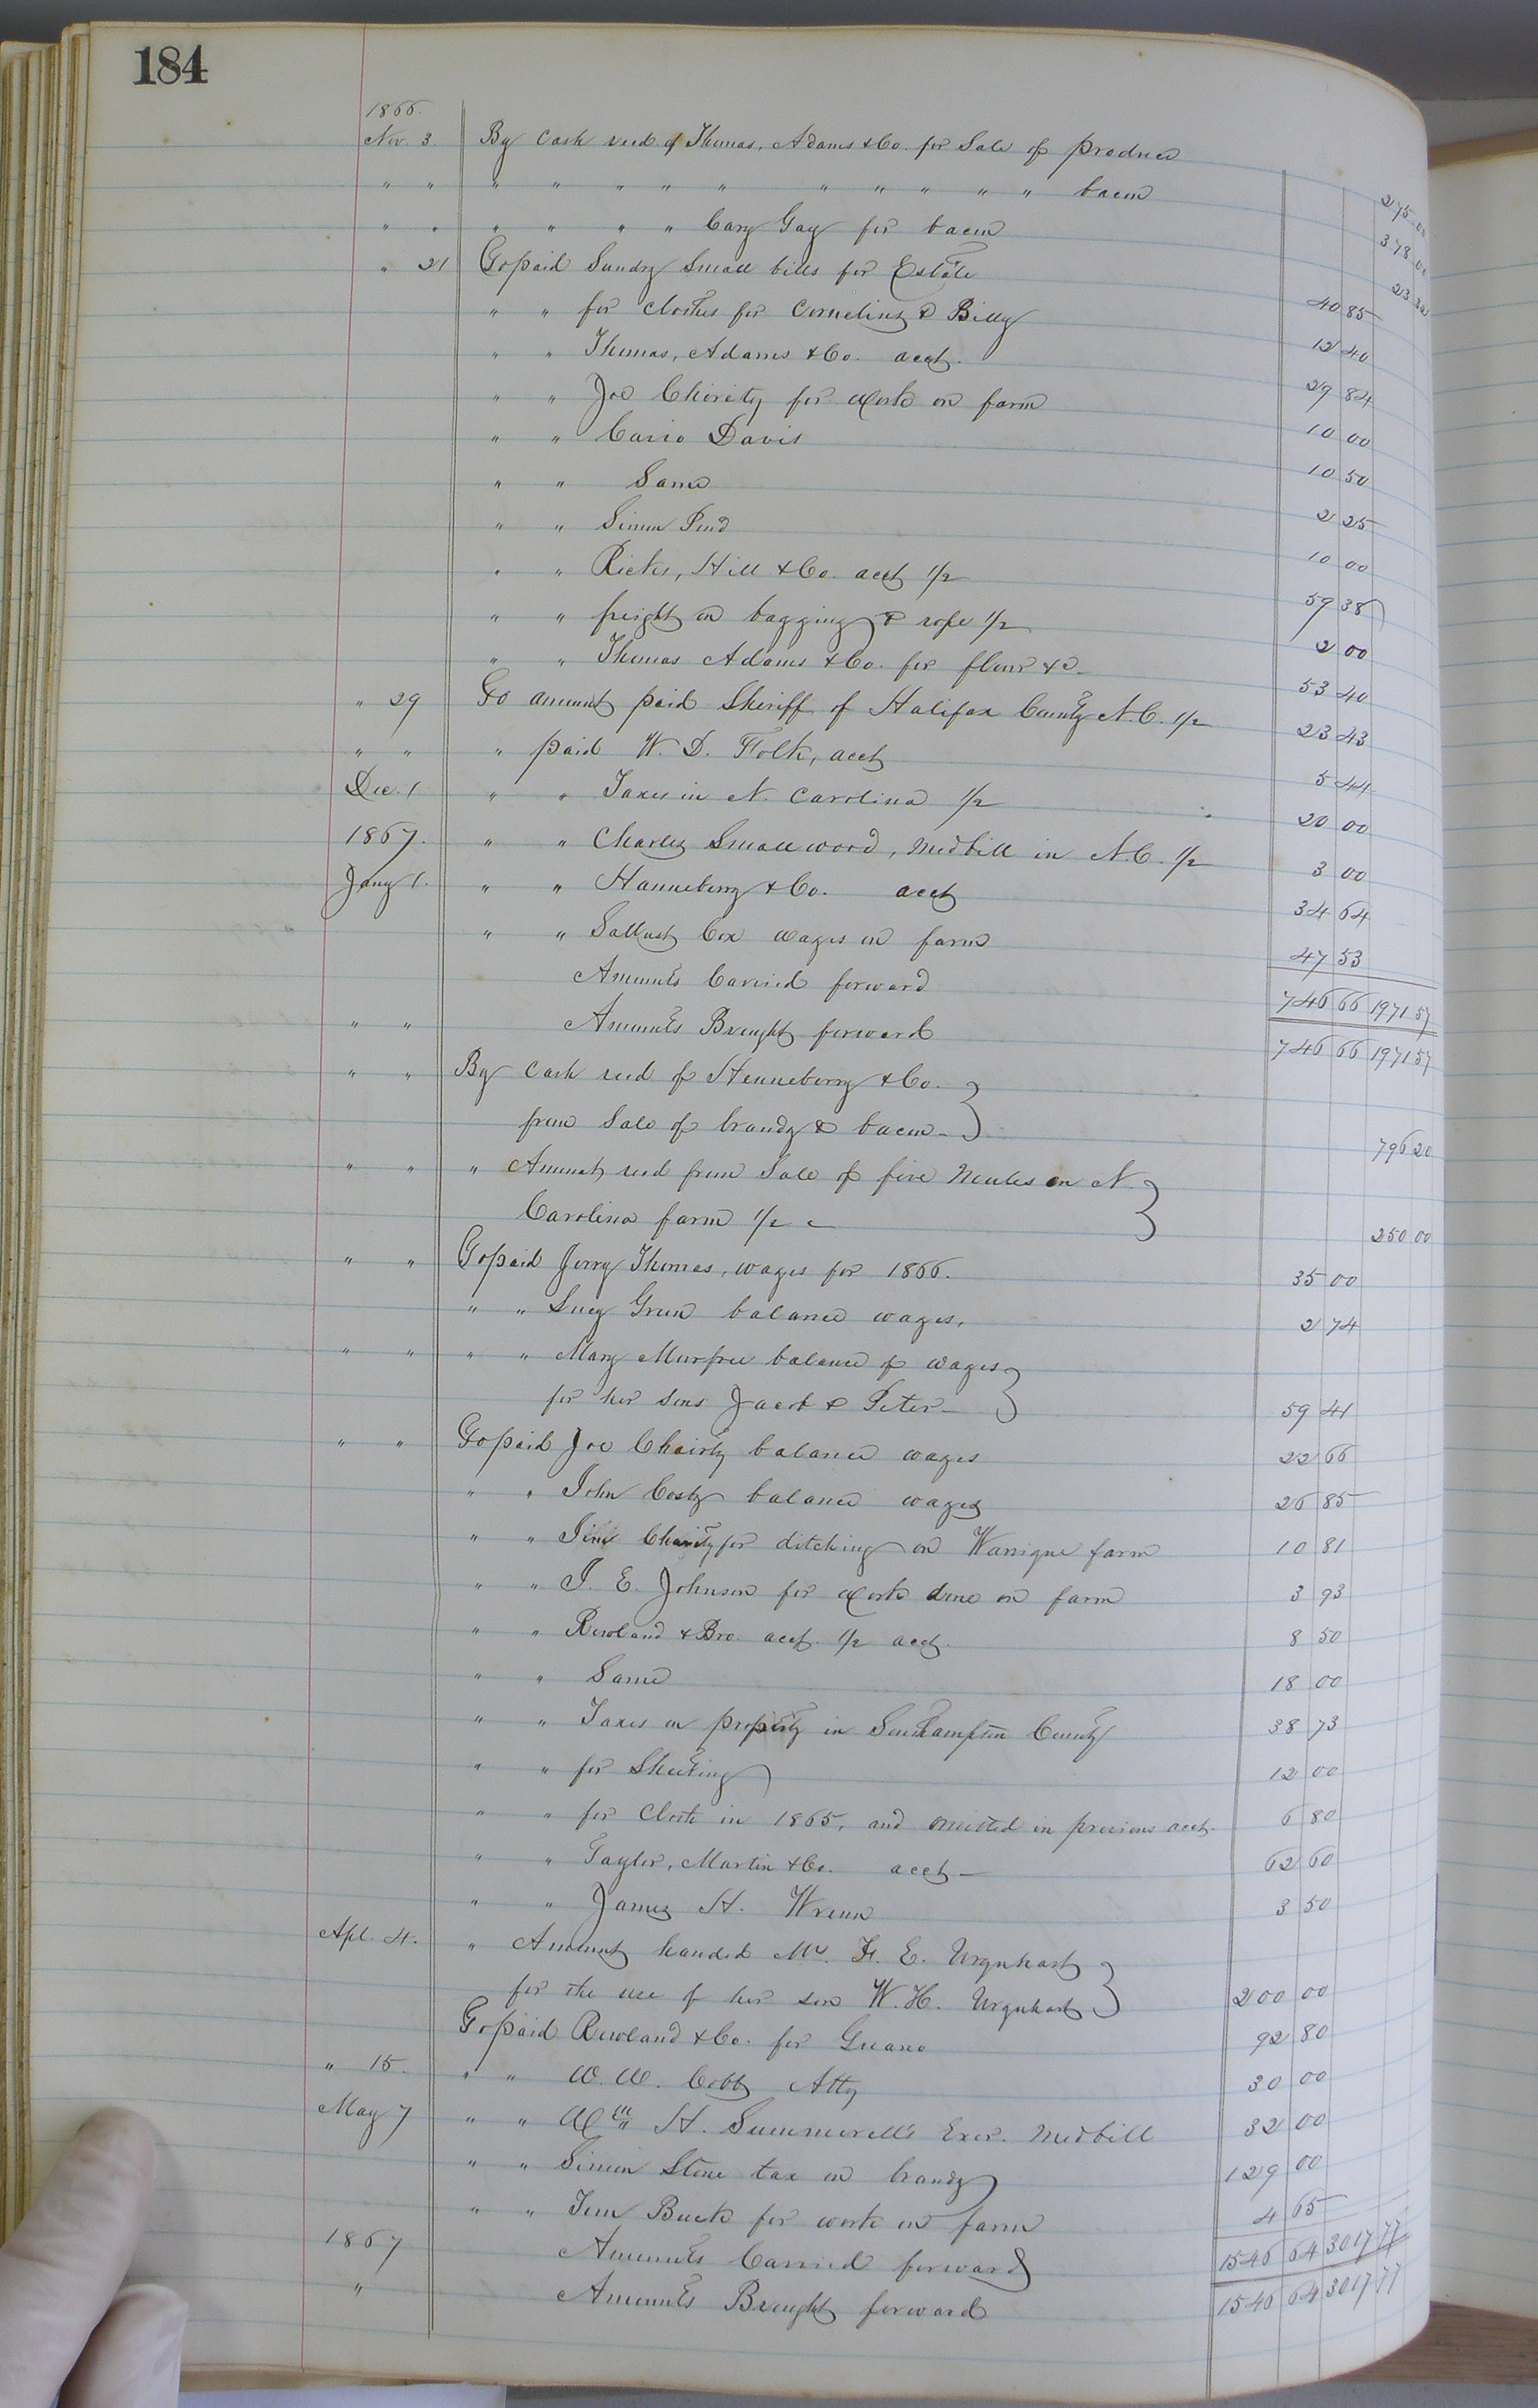 184
1866.
Nov. 3. By Cash recd of Thomas, Adams & Co. for Sale of produce 275 00
" " " " " " " " " " " " bacon 378 00
" " " " " " Cary Gay for bacon 23 30
" 21 To paid Sundry Small bills for Estate 40 85
" " for clothes for Cornelius & Billy 12 40
" " Thomas, Adams & Co. acct. 29 84
" " Joe Charity for work on farm 10 00
" " Davis 10 50
" " Same 2 25
" " Simon 10 00
" " Ricks, Hill & Co. acct 1/2 59 38
" " freight on bagging & rope 1/2 2 00
" " Thomas Adams & Co. for flour &c 53 40
" 29 To amount paid Sheriff of Halifax County N.C. 1/2 23 43
" " " paid W. D. Folk, acct 5 44
Dec. 1 " " Taxes in N. Carolina 1/2 20 00
1867. " " Charles Smallwood, Med bill in N.C. 1/2 3 00
Jany 1. " " Hanneberry & Co. acct 34 64
" " Sallust Cox wages on farm 47 53
Amounts Carried forward 746 66 1971 57
" " Amounts Brought forward 746 66 1971 57
" " By Cash recd of Henneberry & Co.
from Sale of brandy & bacon 796 20
" " " Amount recd from Sale of five Mules on N.
Carolina farm 1/2 250 00
" " To paid Jerry Thomas, wages for 1866. 35 00
" " Lucy Green balance wages, 2 74
" " " " Mary Murfree balance of wages
for her sons Jacob & Peter 59 41
" " To paid Joe Charity balance wages 22 66
" " John Cosby balance wages 26 85
" " Jim Charity for ditching on Warrique farm 10 81
" " J. E. Johnson for work done on farm 3 93
" " Rowland & Bro. acct. 1/2 acct. 8 50
" " Same 18 00
" " Taxes on property in Southampton County 38 73
" " for Sheeting 12 00
" " for Cloth in 1865, and omitted in previous acct. 6 80
" " Taylor, Martin & Co. acct 62 60
" " James H. Wrenn 3 50
Apl. 4. " Amount handed Mrs. F. E. Urquhart
for the use of her son W. H. Urquhart 200 00
To paid Rowland & Co. for Guano 92 80
" 15. " " W. W. Cobb Atty 30 00
May 7 " " Wm H. Summerell's Exor. Med bill 32 00
" " Simon Stone tax on brandy 129 00
" " Jim Buck for work on farm 4 65
1867 Amounts Carried forward 1546 64 3017 77
" Amounts Brought forward 1546 64 3017 77